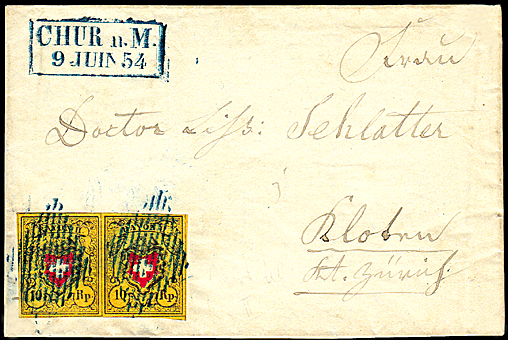 CHUR n. M.
9 JUIN 54
Frau
Doctor Schlatter
Kloten
Kt. Zürich.
RAYON II RAYON II
10 Rp 10 Rp